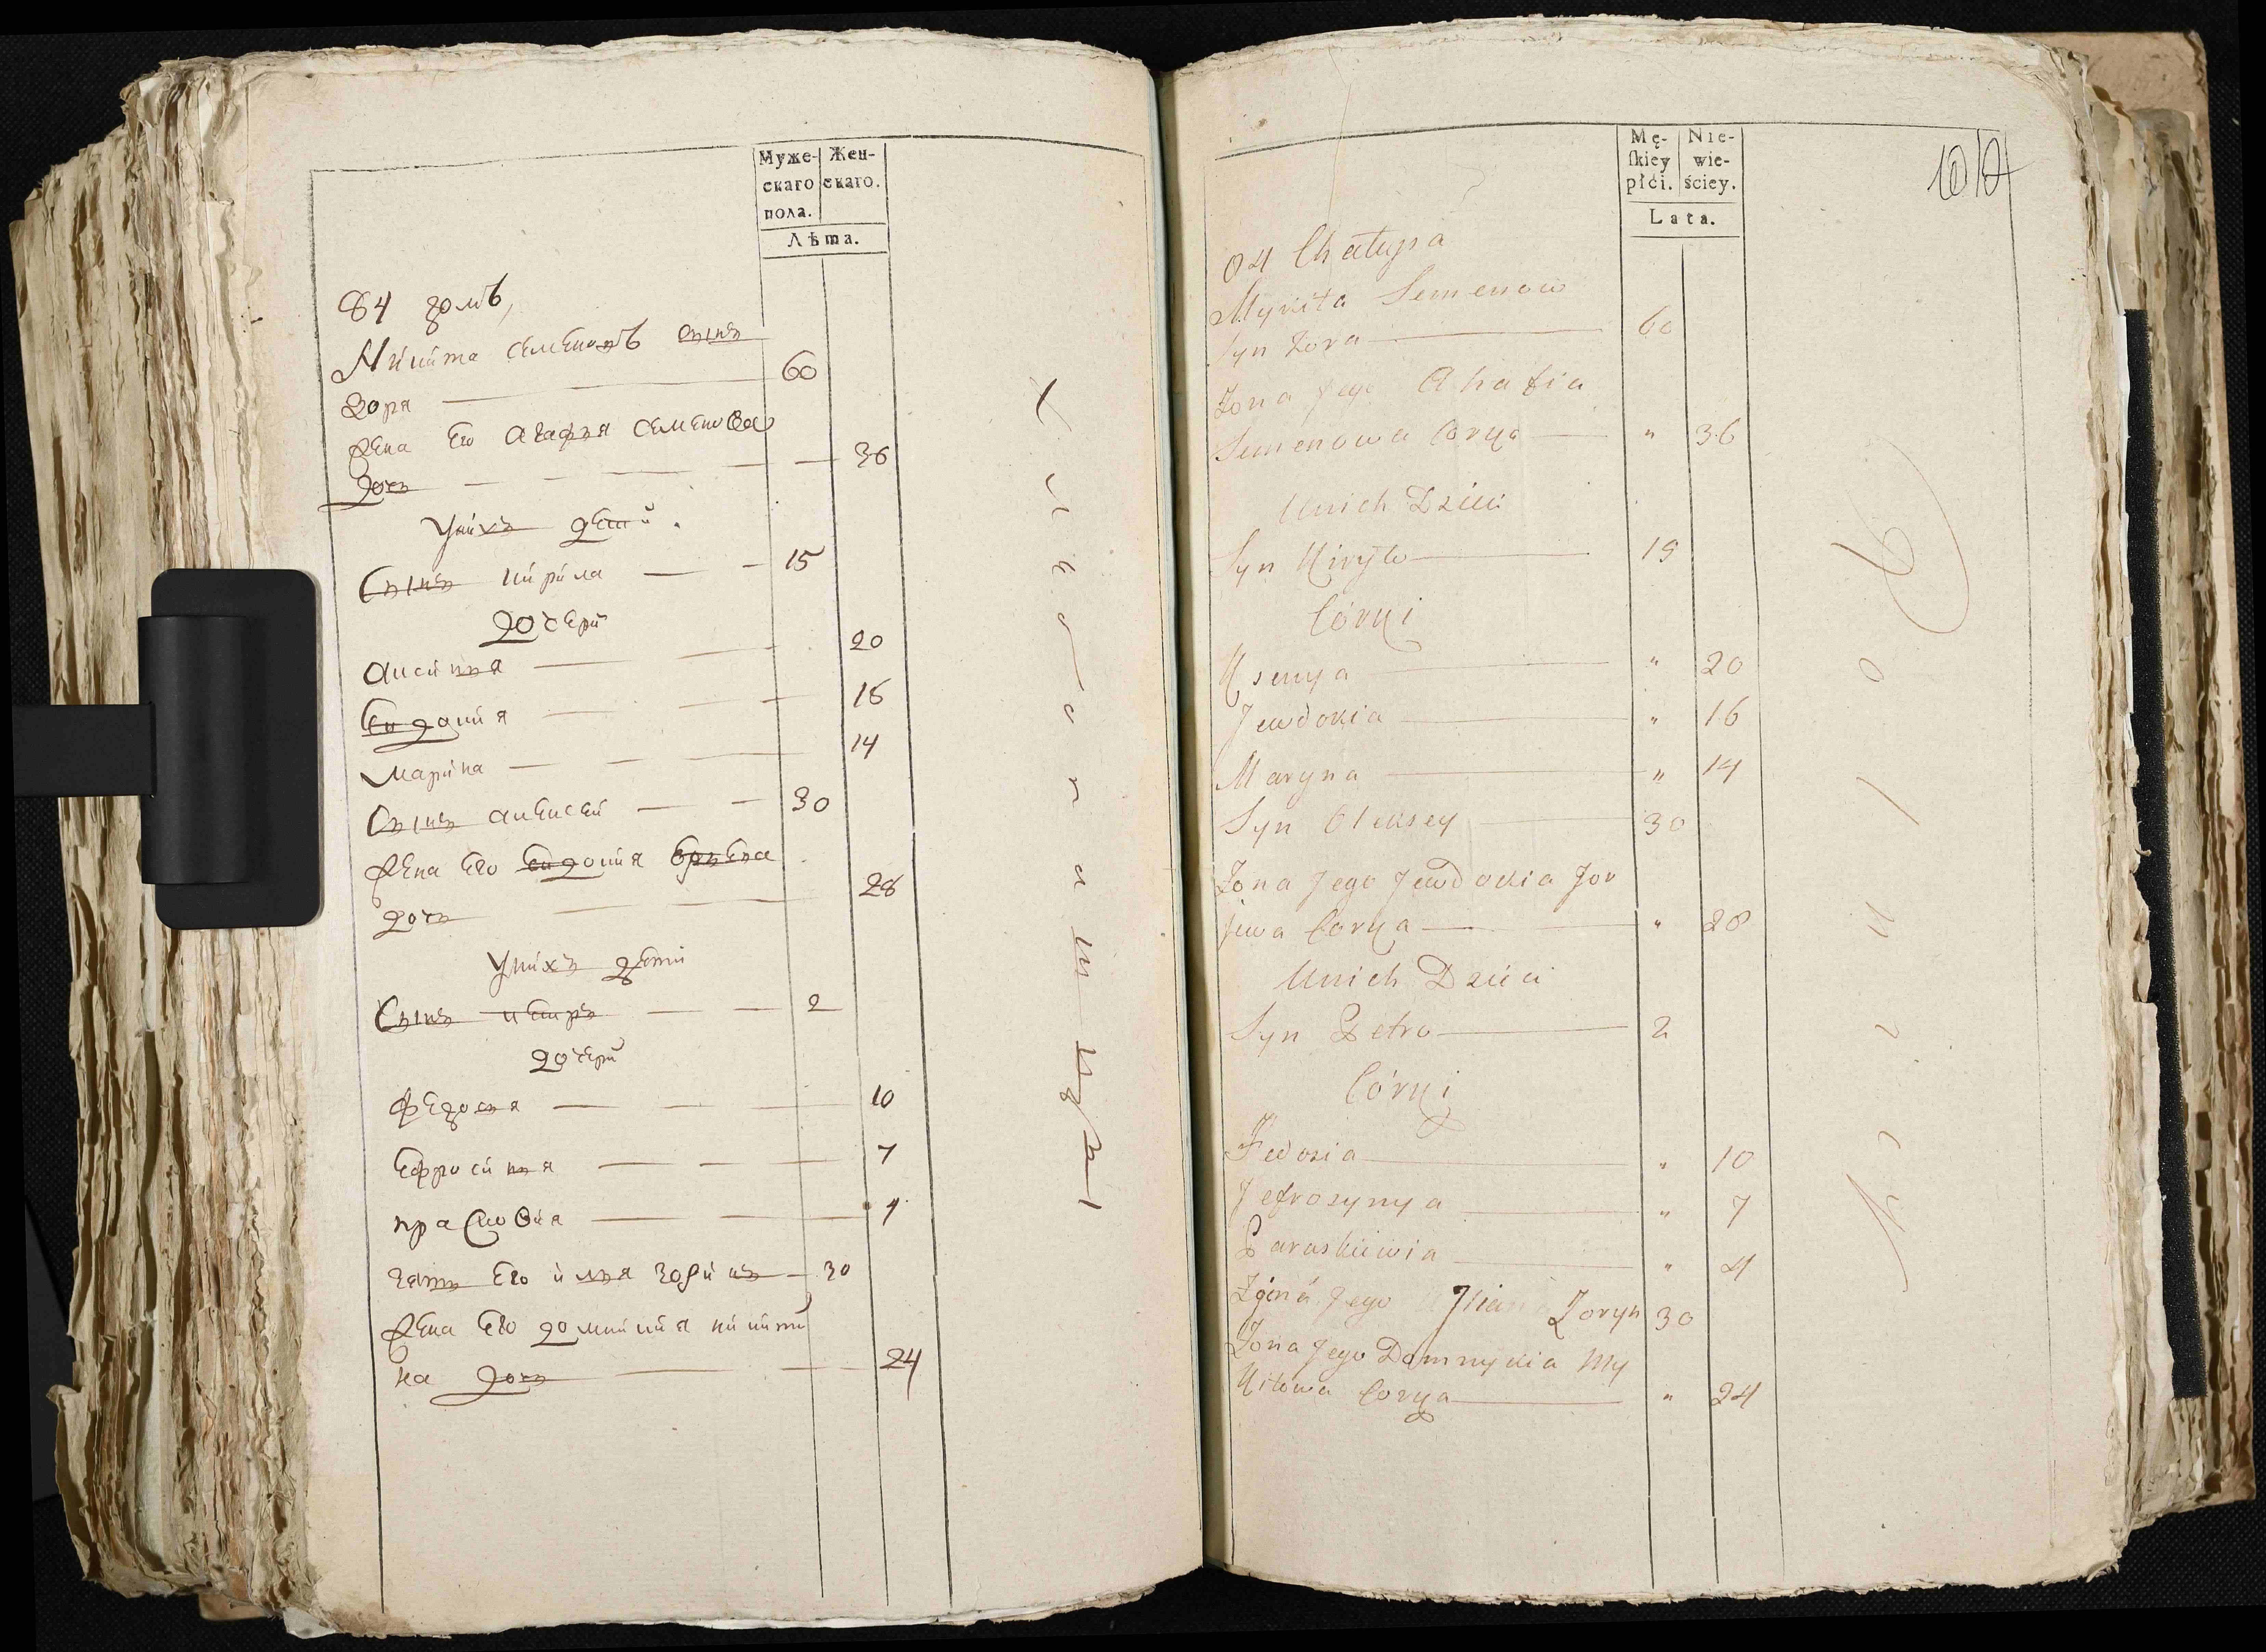 Муже- Жен-
скаго скаго.
пола.
Лѣта.
84 домъ,
Никита семеновъ сынъ
Зоря — 60
жена Его агафья семенова
дочь — 36
У нихъ дети.
Сынъ кирила — 15
дочери
аксинья — 20
Евдокия — 16
марина — 14
Сынъ алексей — 30
жена Его Евдокия
дочь — 28
У нихъ дети
Сынъ петръ — 2
дочери
федосья — 10
Ефросинья — 7
прасковия — 4
зять Его илья Зоринъ — 30
жена Его домникия никити
на дочь — 24
Mę- Nie-
ſkiey wie-
płći. ściey.
Lata.
84 Chałupa
Mykita Semenow
Syn Zora — 60
Żona Jego Ahafia
Semenowa Corka — " 36
U nich Dzieci
Syn Kiryło — 15
Córki
Ksenya — " 20
Jewdokia — " 16
Maryna — " 14
Syn Oleksey — 30
Żona Jego Jewdokia Jor
jewa Corka — " 28
U nich Dzieci
Syn Petro — 2
Córki
Fedosia — " 10
Jefrosynya — " 7
Paraskiewia — " 4
Jego Zoryn 30
Żona Jego Domnykia My
kitowa Corka — " 24